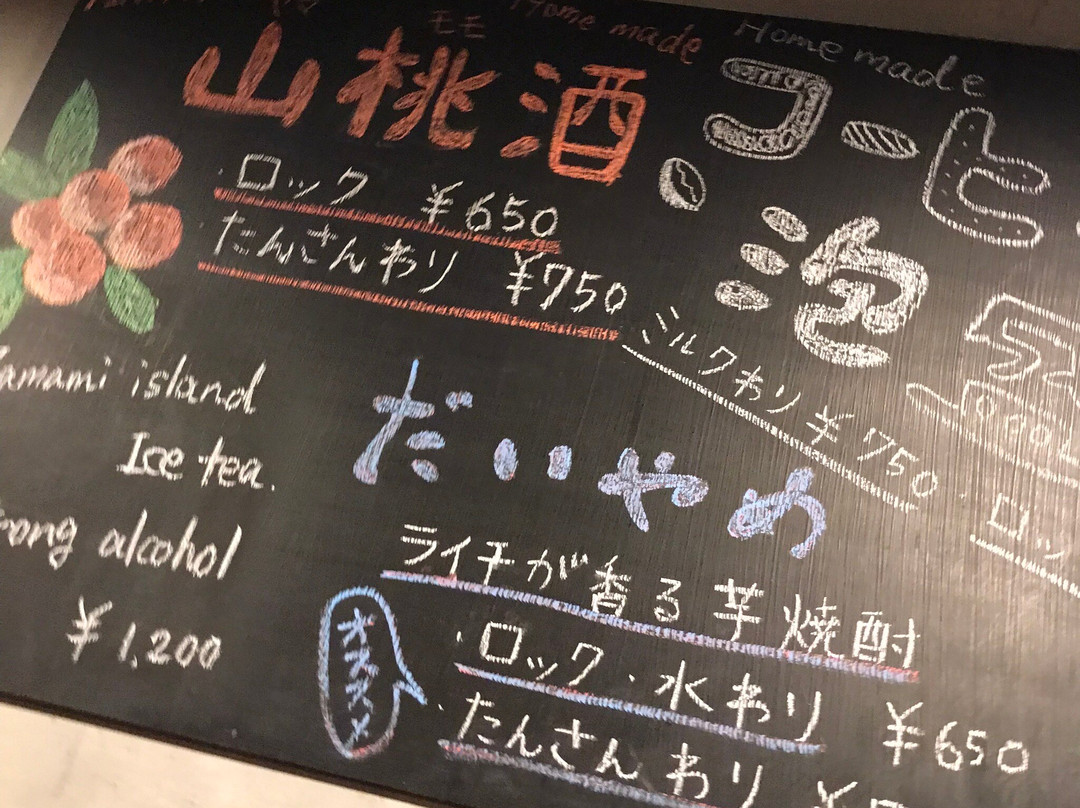 モモ
Home made
山桃酒
・ロック ¥650
たんさんわり ¥750
Home made
コーヒ
泡
ミルクわり ¥750
・ロッ
amami island
Ice tea.
rong alcohol
¥1,200
だいやめ
ライチが香る芋焼酎
オススメ
・ロック・水わり ¥650
・たんさんわり ¥